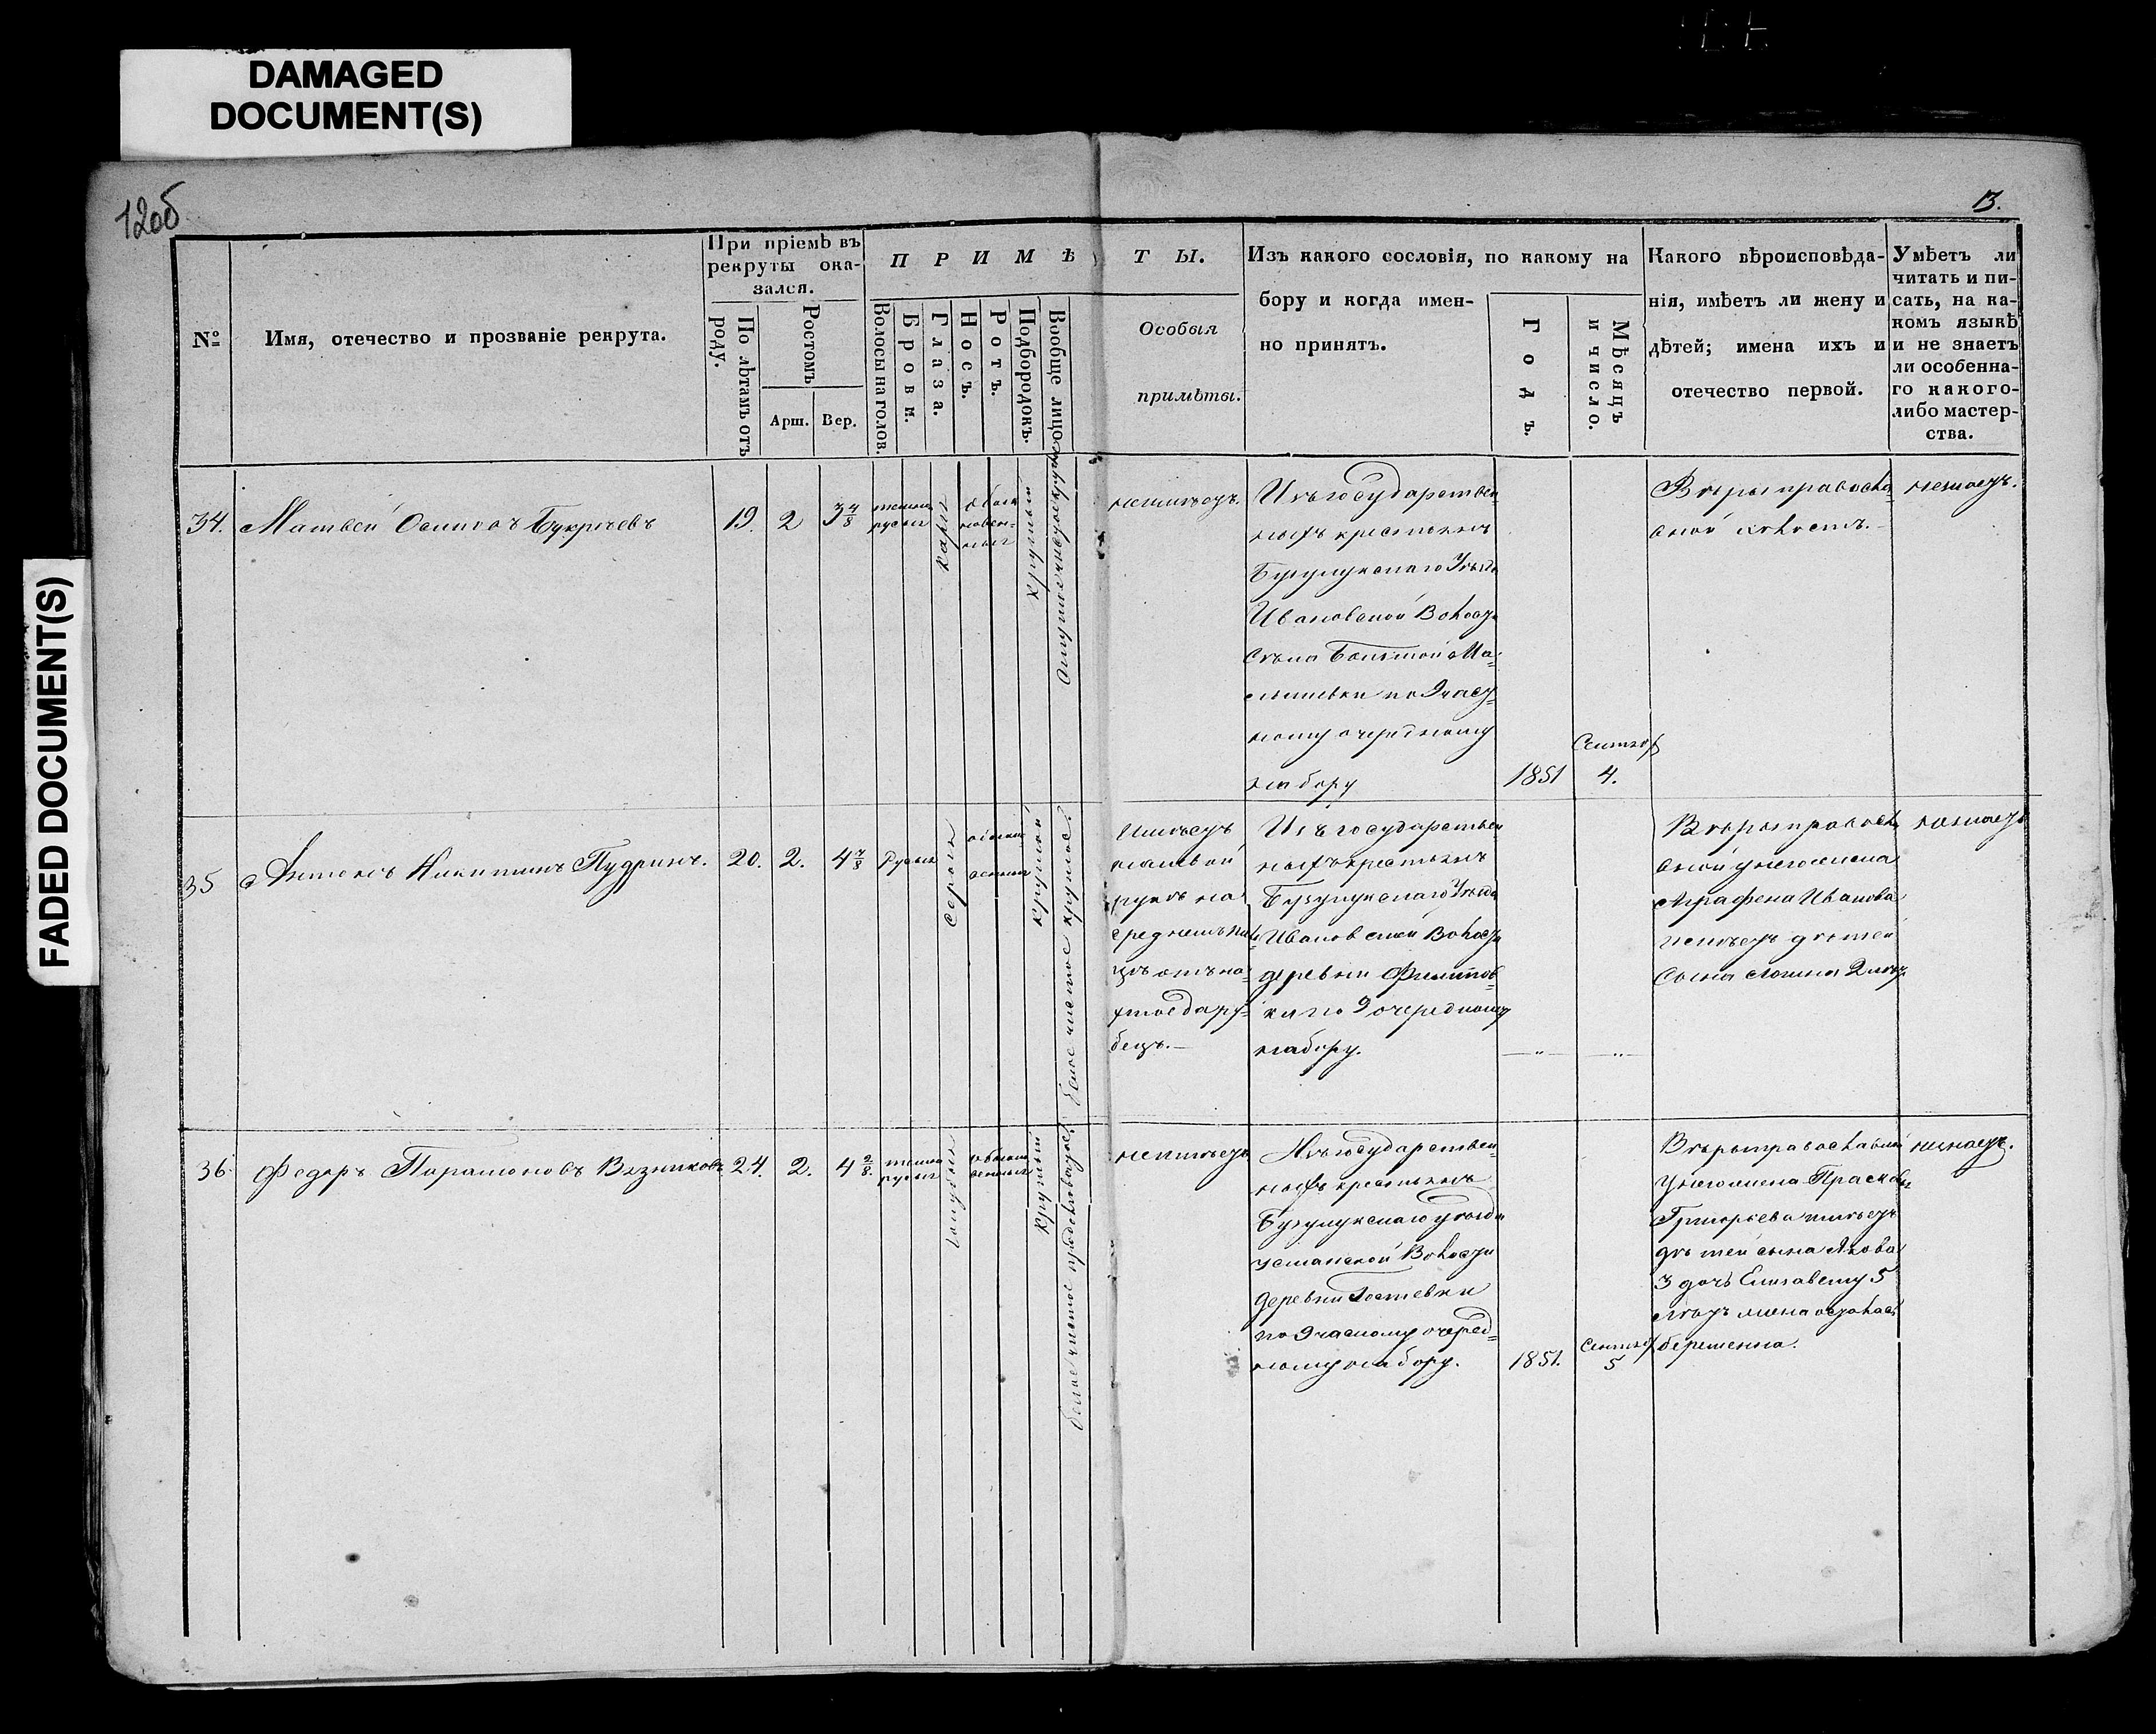 DAMAGED
DOCUMENT(S)
FADED DOCUMENT(S)
12об
13.
№
Имя, отечество и прозваніе рекрута.
При пріемѣ въ
рекруты ока-
зался.
По лѣтамъ отъ
роду.
Ростомъ
Арш.
Вер.
ПРИМѢТЫ.
Волосы на голов.
Брови.
Глаза.
Носъ.
Ротъ.
Подбородокъ.
Вообще лицо
Особыя
примѣты.
Изъ какого сословія, по какому на
бору и когда имен-
но принятъ.
Годъ.
Мѣсяцъ
и число.
Какого вѣроисповѣда-
нія, имѣетъ ли жену и
дѣтей; имена ихъ и
отечество первой.
Умѣетъ ли
читать и пи-
сать, на ка-
комъ языкѣ
и не знаетъ
ли особенна-
го какого-
либо мастер-
ства.
34.
Матвей Осиповъ
19.
2
3 4/8
темно
русыя
карыя
обык
новен-
ныя
круглый
неимѣетъ.
Изъ государствен
ныхъ крестьянъ
Бузулукскаго Уѣзда
Ивановской Волости
Села Большой Ма-
лышевки по 9 часу-
ному очередному
набору
1851
Сентяб
4.
Вѣры православ
ной холостъ.
незнаетъ.
35
Антонъ Никитинъ Пудринъ.
20.
2.
4 4/8
Русыя
серыя
круглый
белое чистое круглое
Имѣетъ
на левой
рукѣ на
среднемъ паль
цѣ
рубецъ.
Изъ государствен
ныхъ крестьянъ
Бузулукскаго Уѣзда
Ивановской Волости
деревни Филипов-
ки по 9 очередному
набору.
— " —
— " —
Вѣры православ
ной у него жена
Аграфена Иванова
имѣетъ дѣтей
Сына 2 лѣтъ
незнаетъ
36
Федоръ Парамоновъ Вязниковъ
24.
2.
4 2/8.
темно
русыя
голубыя
обыкно
венныя
круглый
белое чистое продолговатое
неимѣетъ
Изъ государствен-
ныхъ крестьянъ
Бузулукскаго уѣзда
усманской Волости
деревни Гостевки
по 9 часному очеред-
ному набору.
1851.
Сентяб
5
Вѣры православной
У него жена Прасковья
Григорьева имѣетъ
дѣтей сына Якова
3 дочь Елизавету 5
лѣтъ жена осталась
беременна.
незнаетъ.